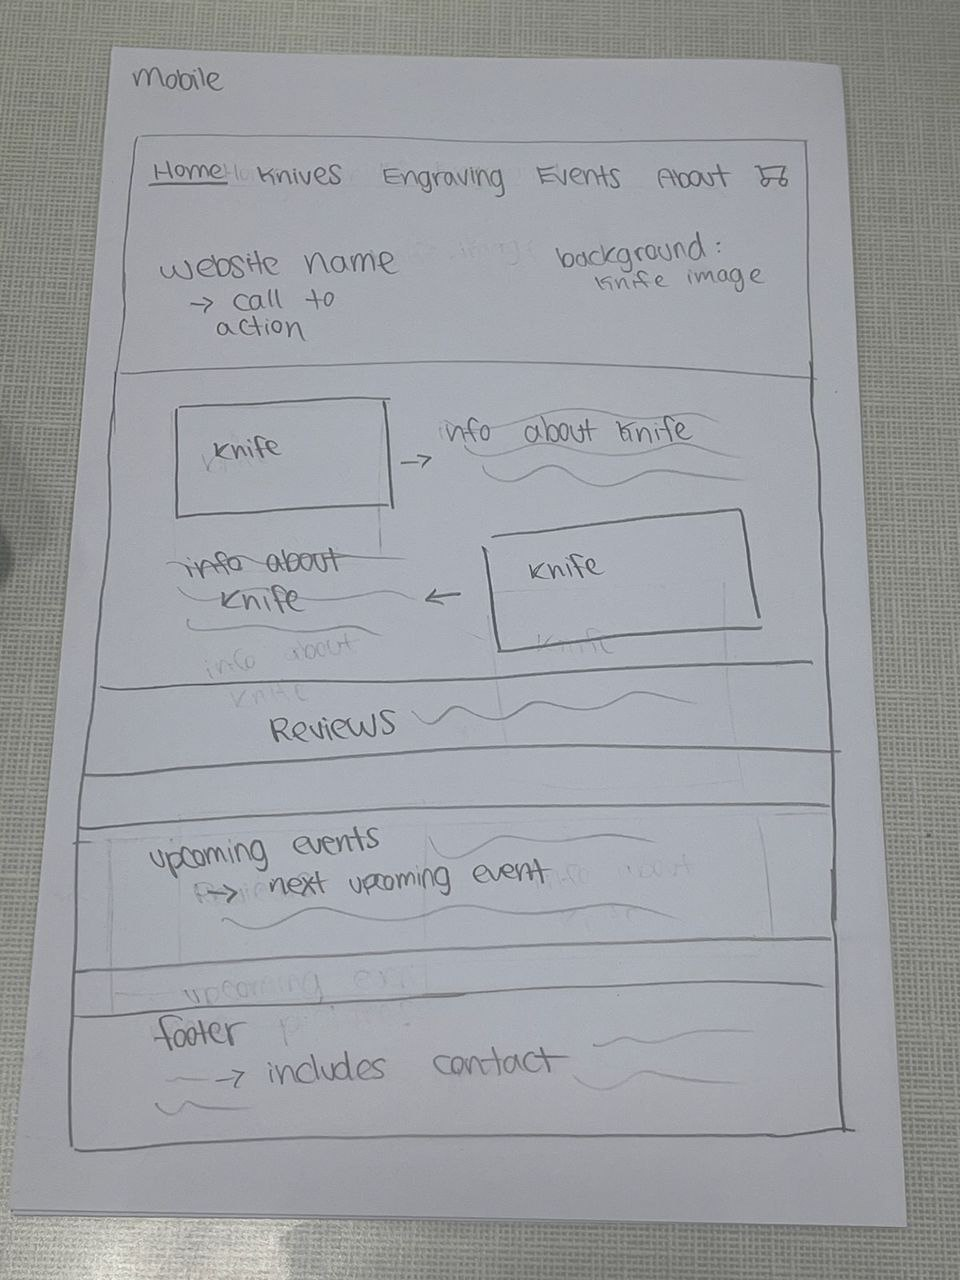 Mobile
Home Knives Engraving Events About
website name
→ call to
action
background:
knife image
Knife
→ info about Knife
info about
Knife ←
Knife
info about
Knife
Knife
Reviews
upcoming events
→ next upcoming event
info about
upcoming
footer
→ includes contact